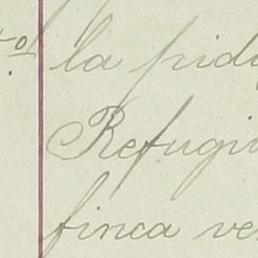 la pid
Refugi
finca ve